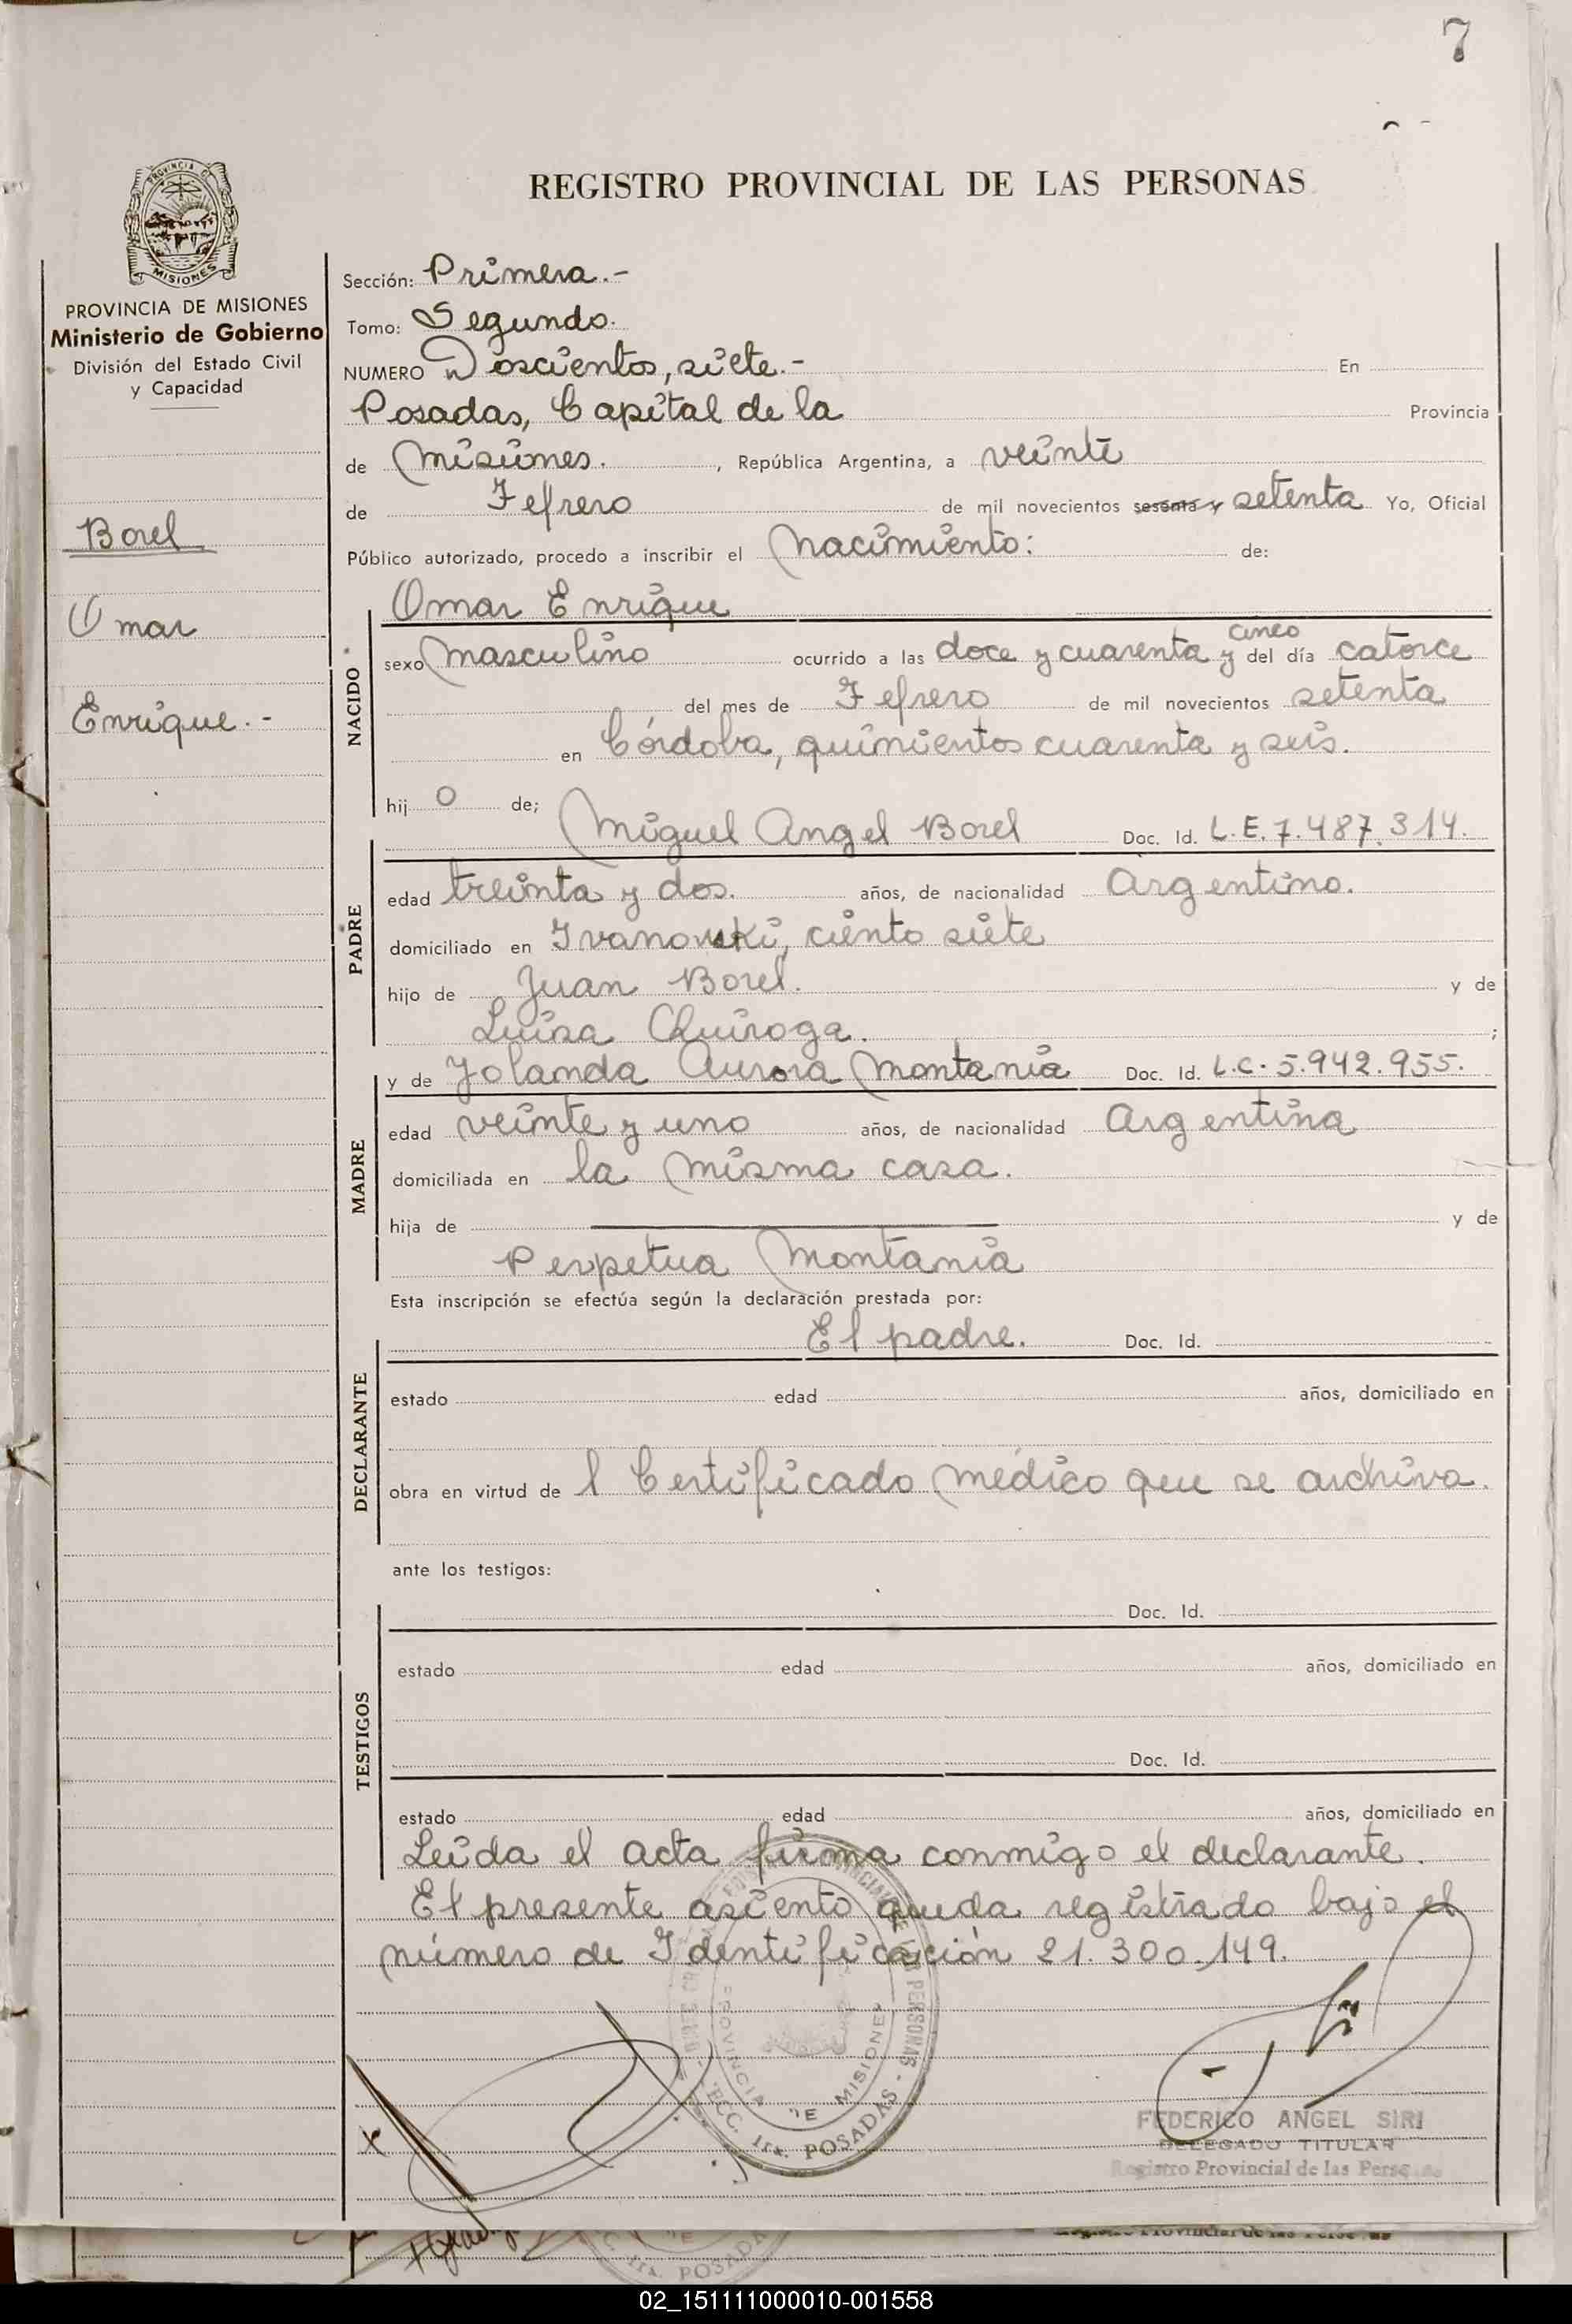 7
PROVINCIA DE
MISIONES
REGISTRO PROVINCIAL DE LAS PERSONAS
PROVINCIA DE MISIONES
Ministerio de Gobierno
División del Estado Civil
y Capacidad
Borel
Omar
Enrique.-
Sección: Primera.-
Tomo: Segundo.
NUMERO Doscientos, siete.- En
Posadas, Capital de la Provincia
de Misiones. , República Argentina, a veinte
de Febrero de mil novecientos sesenta y setenta Yo, Oficial
Público autorizado, procedo a inscribir el Nacimiento: de:
NACIDO
Omar Enrique
cinco
sexo Masculino ocurrido a las doce y cuarenta y del día catorce
del mes de Febrero de mil novecientos setenta
en Córdoba, quinientos cuarenta y seis.
hij o de;
PADRE
Miguel Angel Borel Doc. Id. L.E. 7.487.314.
edad treinta y dos. años, de nacionalidad Argentino.
domiciliado en Ivanowski, ciento siete
hijo de Juan Borel. y de
Luisa Quiroga. ;
MADRE
y de Yolanda Aurora Montania Doc. Id. L.C. 5.942.955.
edad veinte y uno años, de nacionalidad Argentina
domiciliada en la misma casa.
hija de y de
Perpetua Montania
Esta inscripción se efectúa según la declaración prestada por:
DECLARANTE
El padre. Doc. Id.
estado edad años, domiciliado en
obra en virtud de l Certificado médico que se archiva.
ante los testigos:
TESTIGOS
Doc. Id.
estado edad años, domiciliado en
Doc. Id.
estado edad años, domiciliado en
Leida el acta firma conmigo el declarante.
El presente asiento queda registrado bajo el
número de Identificación 21.300.149.
PROVINCIA DE MISIONES
SECC. 1ra. POSADAS
x
FEDERICO ANGEL SIRI
DELEGADO TITULAR
Registro Provincial de las Personas
02_151111000010-001558